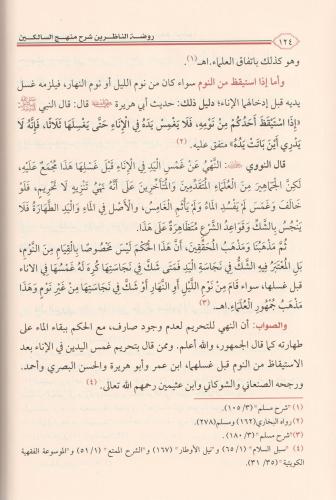 ١٢٤
روضة الناظرين شرح منهج السالكين
وهو كذلك باتفاق العلماء.اهـ(١).
وأما إذا استيقظ من النوم سواء كان من نوم الليل أو نوم النهار، فيلزمه غسل
يديه قبل إدخالهما الإناء؛ دليل ذلك: حديث أبي هريرة قال: قال النبي ﷺ:
«إِذَا اسْتَيْقَظَ أَحَدُكُمْ مِنْ نَوْمِهِ، فَلَا يَغْمِسْ يَدَهُ فِي الْإِنَاءِ حَتَّى يَغْسِلَهَا ثَلَاثًا، فَإِنَّهُ لَا
يَدْرِي أَيْنَ بَاتَتْ يَدُهُ» متفق عليه. (٢)
قال النووي: النَّهْيُ عَنْ غَمْسِ الْيَدِ فِي الْإِنَاءِ قَبْلَ غَسْلِهَا هَذَا مُجْمَعٌ عَلَيْهِ،
لَكِنْ الْجَمَاهِيرَ مِنْ الْعُلَمَاءِ الْمُتَقَدِّمِينَ وَالْمُتَأَخِّرِينَ عَلَى أَنَّهُ نَهْيُ تَنْزِيهٍ لَا تَحْرِيمٍ، فَلَوْ
خَالَفَ وَغَمَسَ لَمْ يَفْسُدِ الْمَاءُ وَلَمْ يَأْثَمِ الْغَامِسُ، وَالْأَصْل فِي الْمَاءِ وَالْيَدِ الطَّهَارَةُ فَلَا
يَنْجُسُ بِالشَّكِّ وَقَوَاعِدُ الشَّرْعِ مُتَظَاهِرَةٌ عَلَى هَذَا.
ثُمَّ مَذْهَبُنَا وَمَذْهَبُ الْمُحَقِّقِينَ، أَنَّ هَذَا الْحُكْمَ لَيْسَ مَخْصُوصًا بِالْقِيَامِ مِنَ النَّوْمِ،
بَلِ الْمُعْتَبَرُ فِيهِ الشَّكُّ فِي نَجَاسَةِ الْيَدِ، فَمَتَى شَكَّ فِي نَجَاسَتِهَا كُرِهَ لَهُ غَمْسُهَا فِي الاناء
قَبْلَ غَسْلِهَا، سواء قَامَ مِنْ نَوْمِ اللَّيْلِ أَوِ النَّهَارِ أَوْ شَكَّ فِي نَجَاسَتِهَا مِنْ غَيْرِ نَوْمٍ وَهَذَا
مَذْهَبُ جُمْهُورِ الْعُلَمَاءِ.اهـ (٣)
والصواب: أن النهي للتحريم لعدم وجود صارف، مع الحكم ببقاء الماء على
طهارته كما قال الجمهور، والله أعلم. وممن قال بتحريم غمس اليدين في الإناء بعد
الاستيقاظ من النوم قبل غسلهما، ابن عمر وأبو هريرة والحسن البصري وأحمد.
ورجحه الصنعاني والشوكاني وابن عثيمين رحمهم الله تعالى. (٤)
(١) "شرح مسلم" (٣/ ١٠٥).
(٢) رواه البخاري(١٦٢) ومسلم(٢٧٨).
(٣) "شرح مسلم" (٣/ ١٨٠).
(٤) "سبل السلام" (١/ ٦٥) و "نيل الأوطار" (١٦٧) و"الشرح الممتع" (١/ ٥١) و"الموسوعة الفقهية
الكويتية" (٣٥/ ٣١).